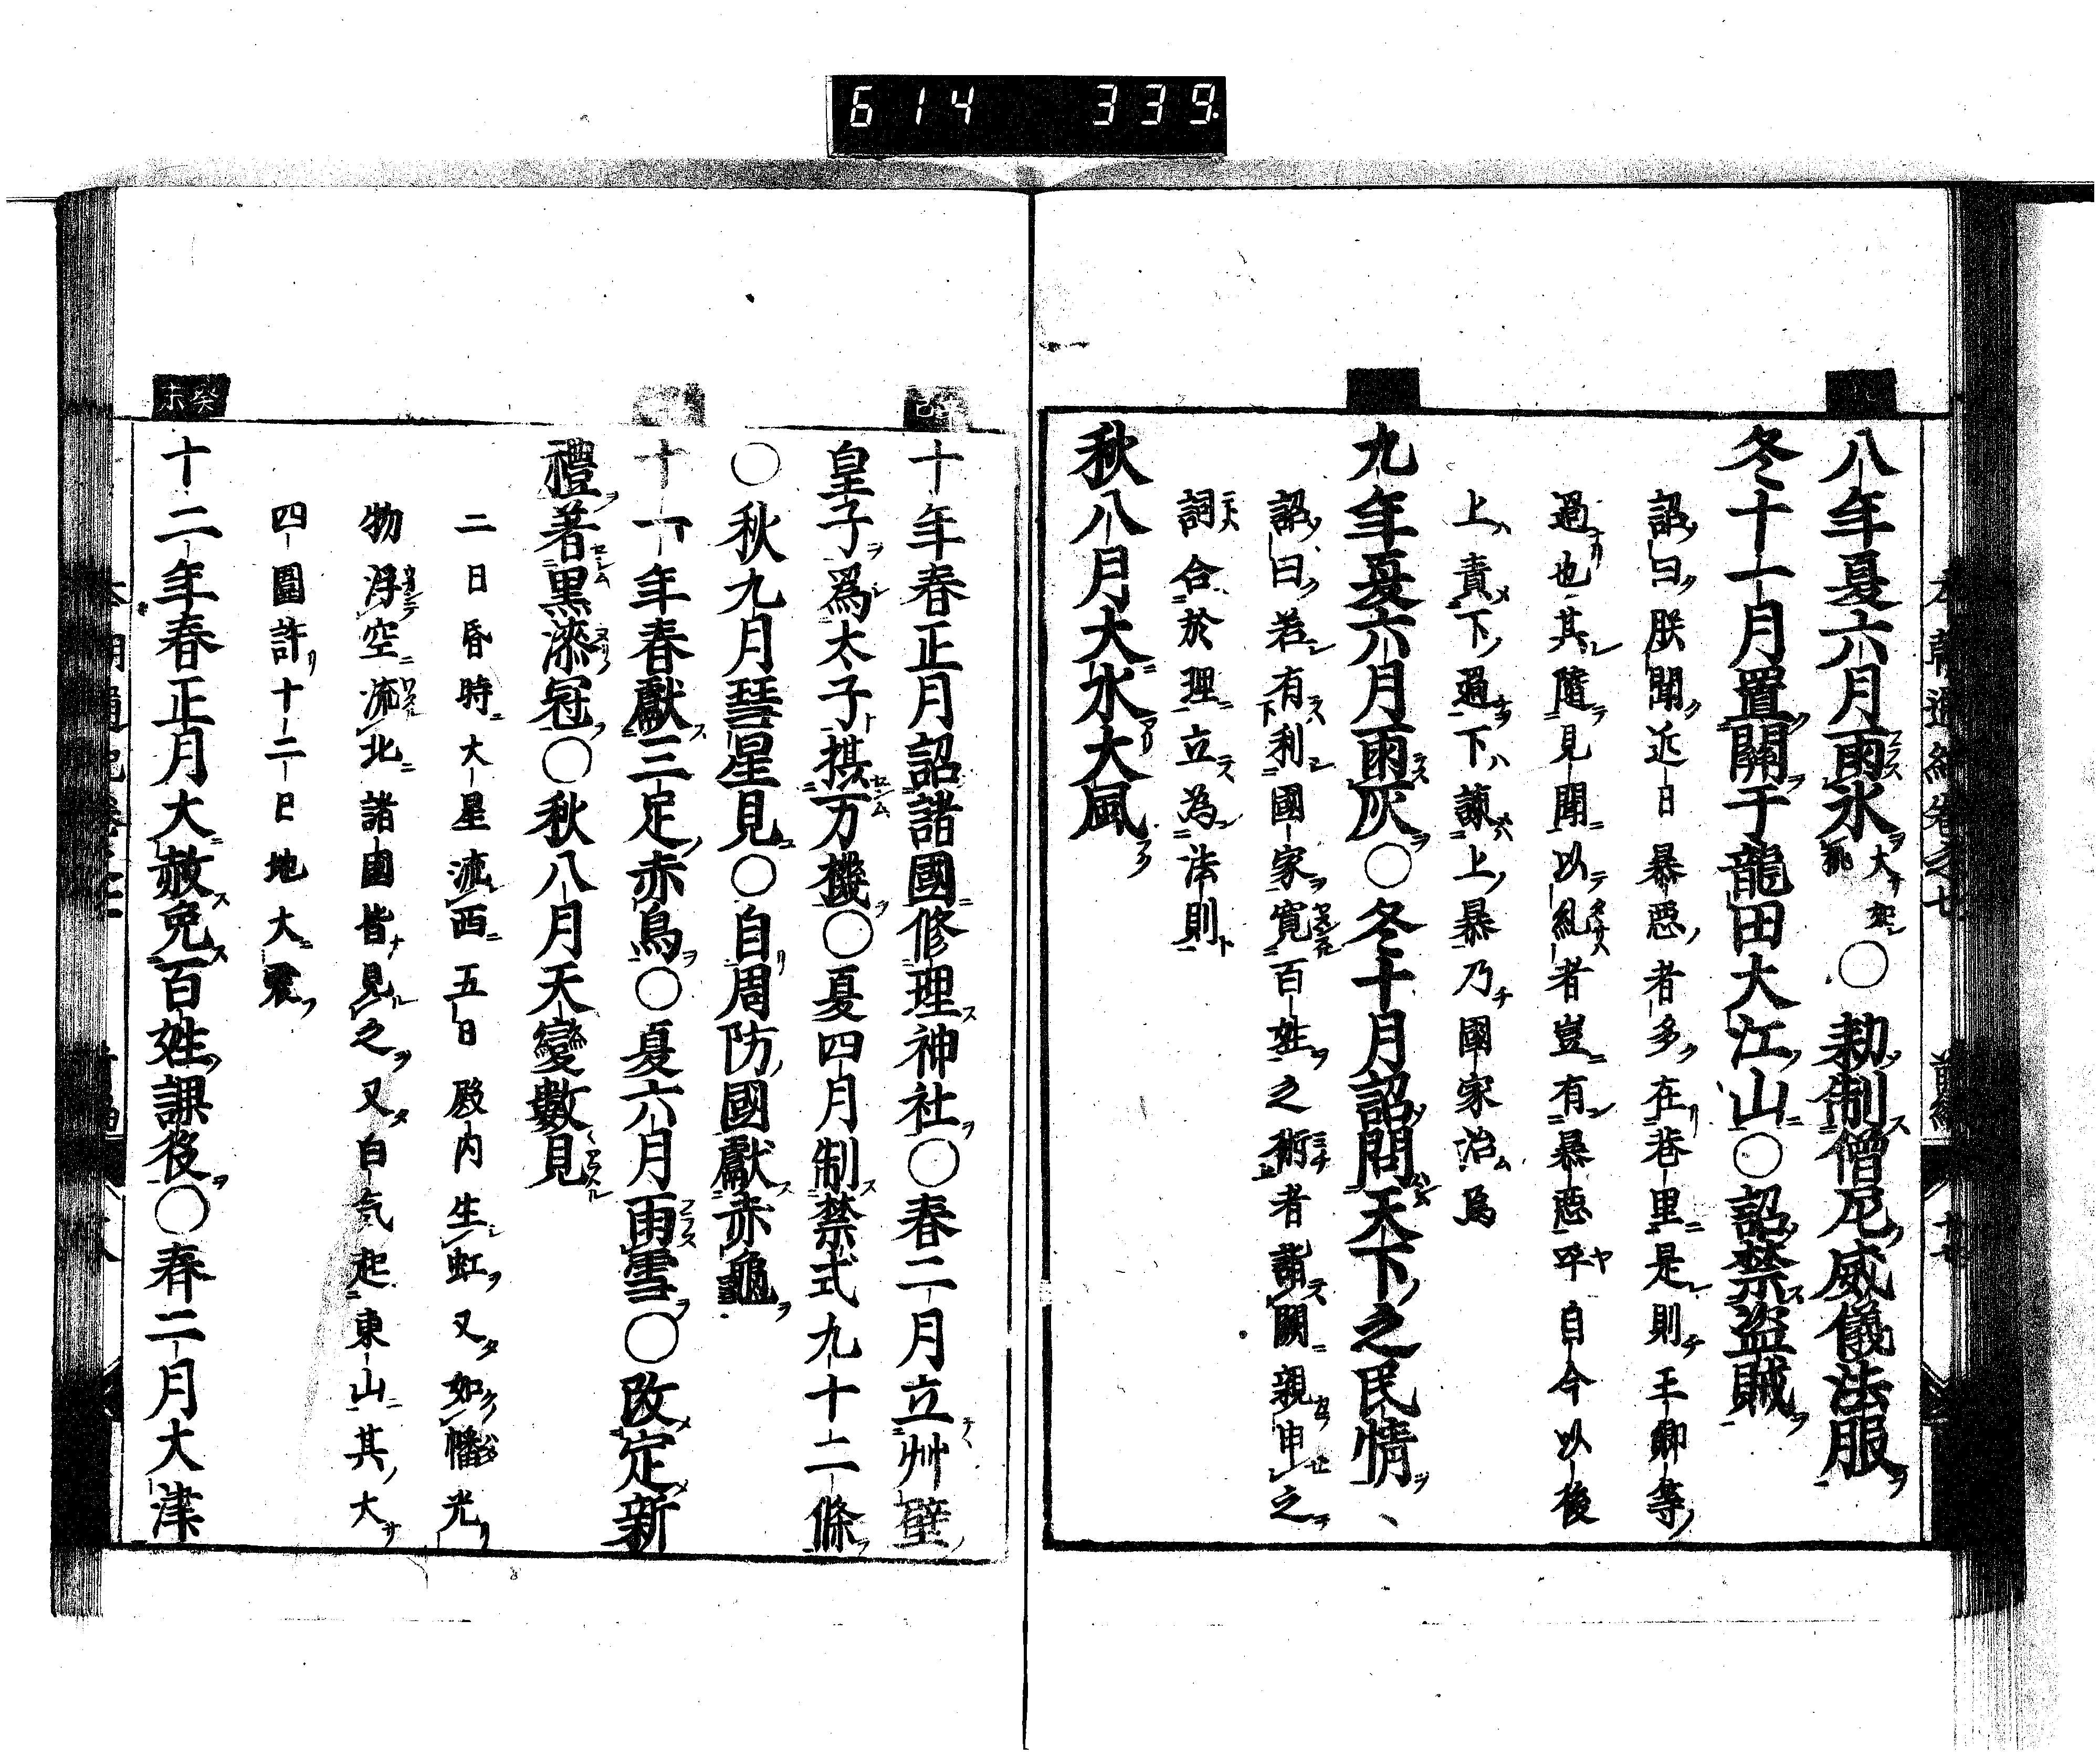 614 339
八年夏六月雨氷大如桃〇勅制僧尼威儀法服
冬十一月置關于龍田大江山〇詔禁盗賊
詔曰朕聞近日暴惡者多在巷里是則王卿等
過也其隨見聞以糺者豈有暴惡乎自今以後
上責下過下諫上暴乃國家治焉
九年夏六月雨灰〇冬十月詔問天下之民情
詔曰若有利國家寛百姓之術者詣闕親申之
詞合於理立為法則
秋八月大水大風
十年春正月詔諸國修理神社〇春二月立艸壁
皇子爲太子摂万機〇夏四月制禁式九十二條
〇秋九月彗星見〇自周防國獻赤龜
十一年春獻三足赤鳥〇夏六月雨雪〇改定新
禮著黒漆冠〇秋八月天變數見
二日昏時大星流西五日殿内生虹又如幡光
物浮空流北諸國皆見之又白気起東山其大
四圍許十二日地大震
癸未
十二年春正月大赦免百姓課役〇春二月大津